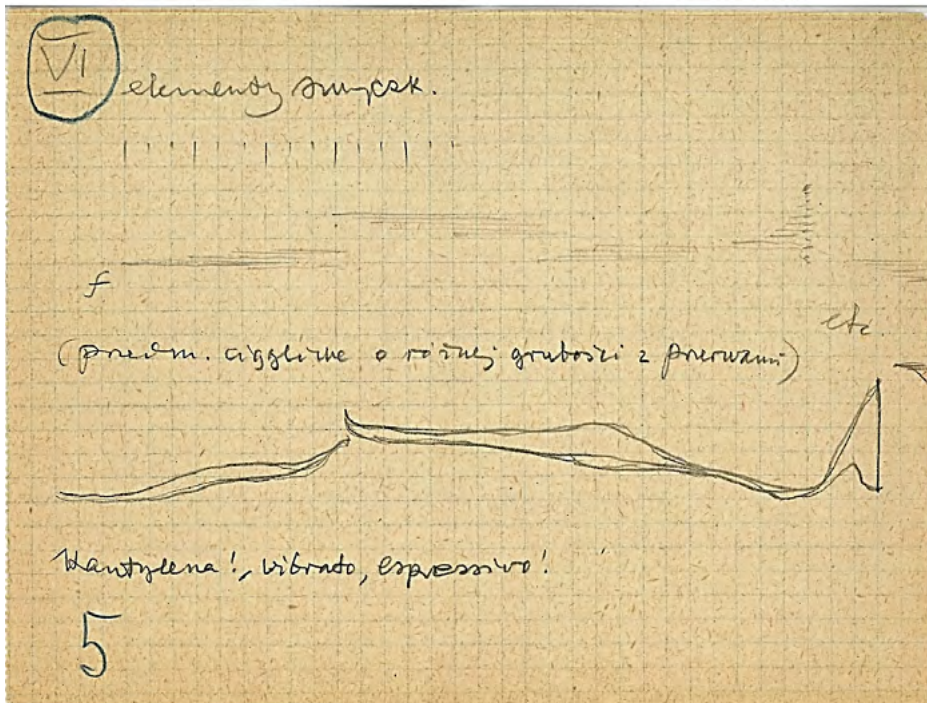 VI
elementy smyczk.
f
etc
(przedm. ciągliwe o różnej grubości z przerwami)
Kantylena!, vibrato, espressivo!
5